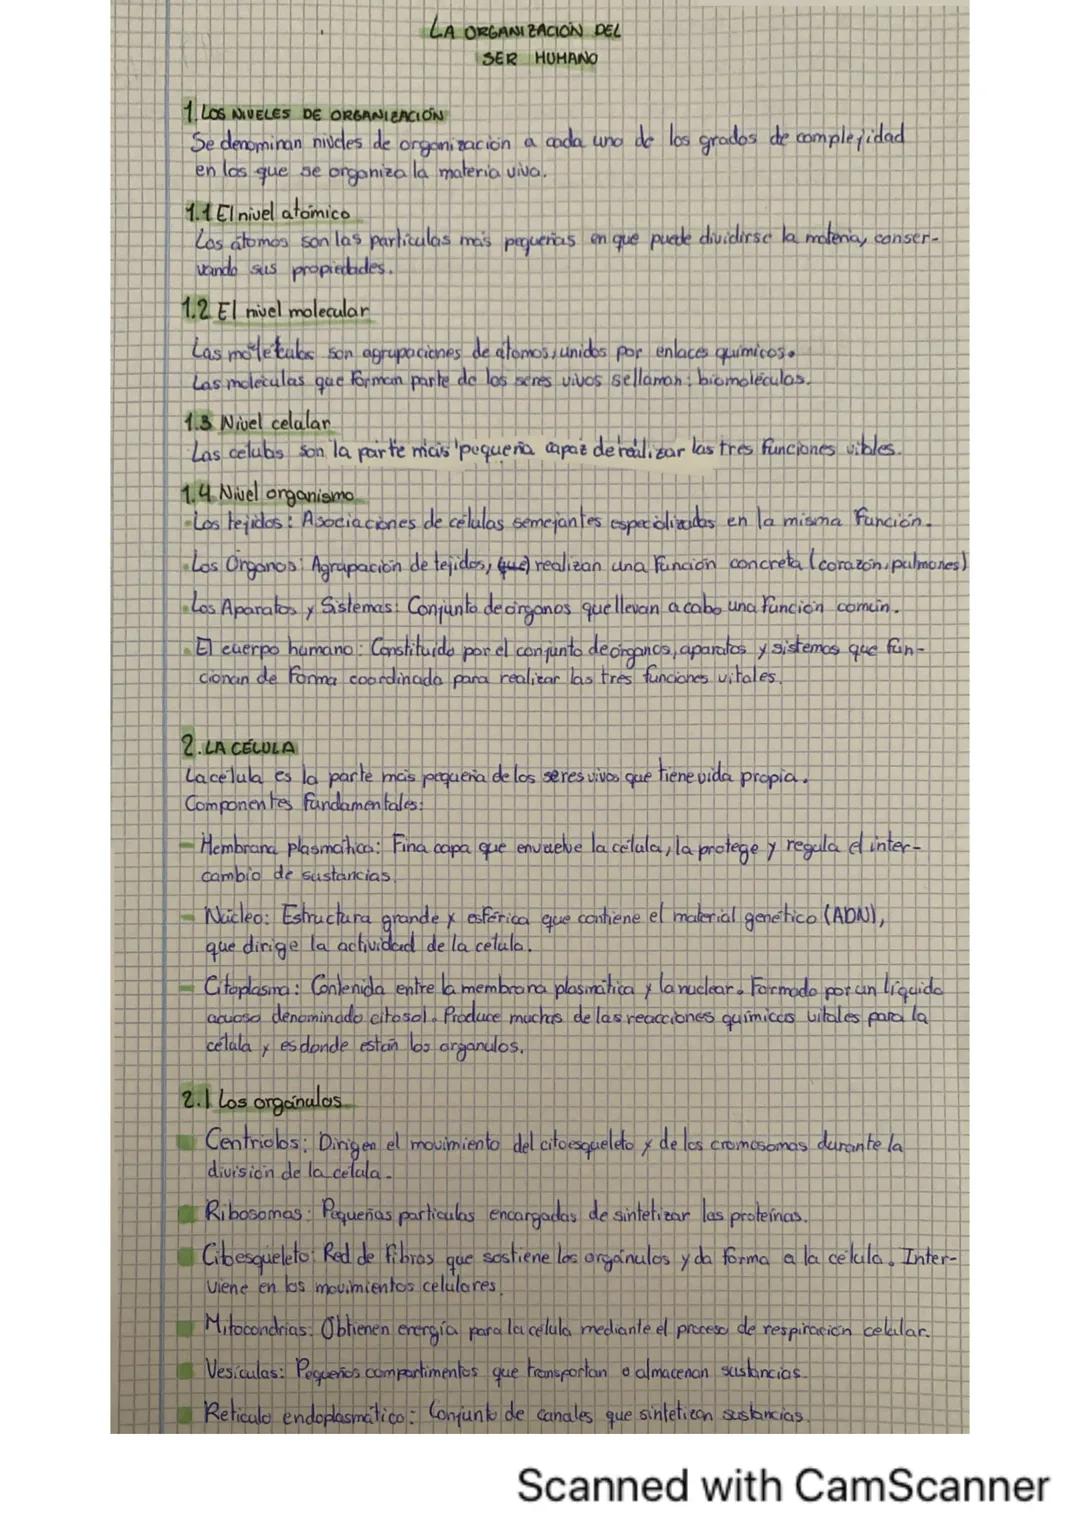 LA ORGANIZACIÓN DEL
SER HUMANO
1. LOS NIVELES DE ORGANIZACIÓN
Se denominan niveles de organización a cada uno de los grados de complejidad
en los que se organiza la materia viva.
1.1 El nivel atómico
Los átomos son las partículas más pequeñas en que puede dividirse la materia, conser-
vando sus propiedades.
1.2 El nivel molecular
Las moléculas son agrupaciones de átomos, unidos por enlaces químicos.
Las moléculas que forman parte de los seres vivos se llaman: biomoléculas.
1.3 Nivel celular
Las células son la parte más pequeña capaz de realizar las tres funciones vitales.
1.4 Nivel organismo
-Los tejidos: Asociaciones de células semejantes especializadas en la misma función.
-Los Órganos: Agrupación de tejidos, (que) realizan una función concreta (corazón, pulmones)
-Los Aparatos y Sistemas: Conjunto de órganos que llevan a cabo una función común.
-El cuerpo humano: Constituido por el conjunto de órganos, aparatos y sistemas que fun-
cionan de forma coordinada para realizar las tres funciones vitales.
2. LA CÉLULA
La célula es la parte más pequeña de los seres vivos que tiene vida propia.
Componentes fundamentales:
- Membrana plasmática: Fina capa que envuelve la célula, la protege y regula el inter-
cambio de sustancias.
- Núcleo: Estructura grande y esférica que contiene el material genético (ADN),
que dirige la actividad de la célula.
- Citoplasma: Contenida entre la membrana plasmática y la nuclear. Formado por un líquido
acuoso denominado citosol. Produce muchas de las reacciones químicas vitales para la
célula y es donde están los orgánulos.
2.1 Los orgánulos
Centriolos: Dirigen el movimiento del citoesqueleto y de los cromosomas durante la
división de la célula.
Ribosomas: Pequeñas partículas encargadas de sintetizar las proteínas.
Citoesqueleto: Red de fibras que sostiene los orgánulos y da forma a la célula. Inter-
viene en los movimientos celulares.
Mitocondrias: Obtienen energía para la célula mediante el proceso de respiración celular.
Vesículas: Pequeños compartimentos que transportan o almacenan sustancias.
Retículo endoplasmático: Conjunto de canales que sintetizan sustancias.
Scanned with CamScanner